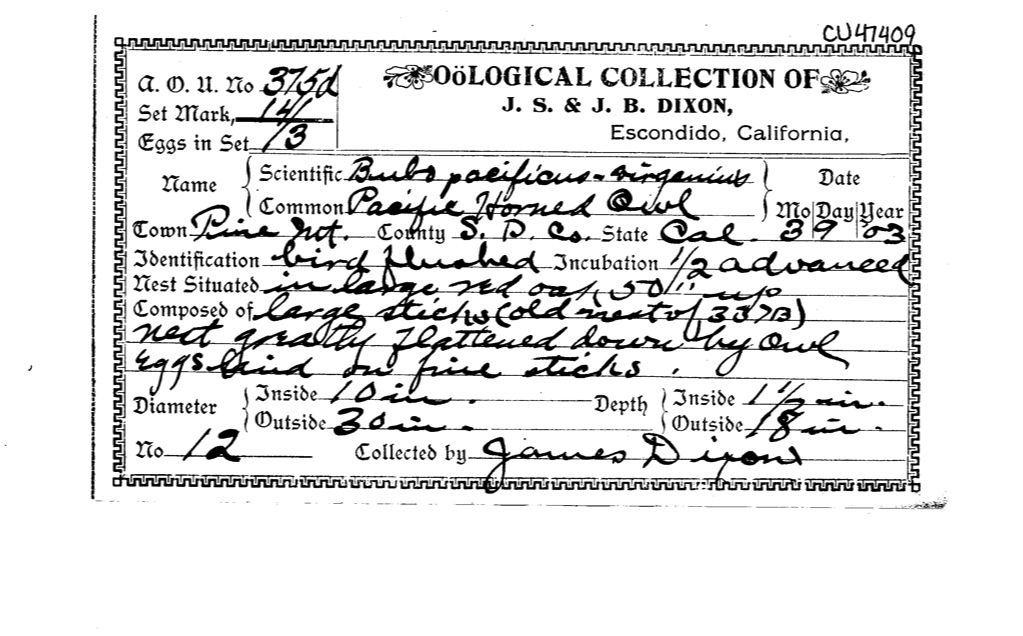 CU47409
A. O. U. No 375d
OöLOGICAL COLLECTION OF
Set Mark, 14/
J. S. & J. B. DIXON,
Eggs in Set /3
Escondido, California,
Name Scientific Bubo pacificus-virgenius
Common Pacific Horned Owl
Date
Mo Day Year
Town Pine Mt. County S. D. Co. State Cal. 3 9 '03
Identification bird flushed Incubation 1/2 advanced
Nest Situated in large red oak, 50 " up
Composed of large sticks (old nest of 337B)
nest greatly flattened down by Owl
Eggs laid on fine sticks.
Diameter Inside 10 in. Depth Inside 1 1/2 in.
Outside 30 in. Outside 18 in.
No 12 Collected by James Dixon